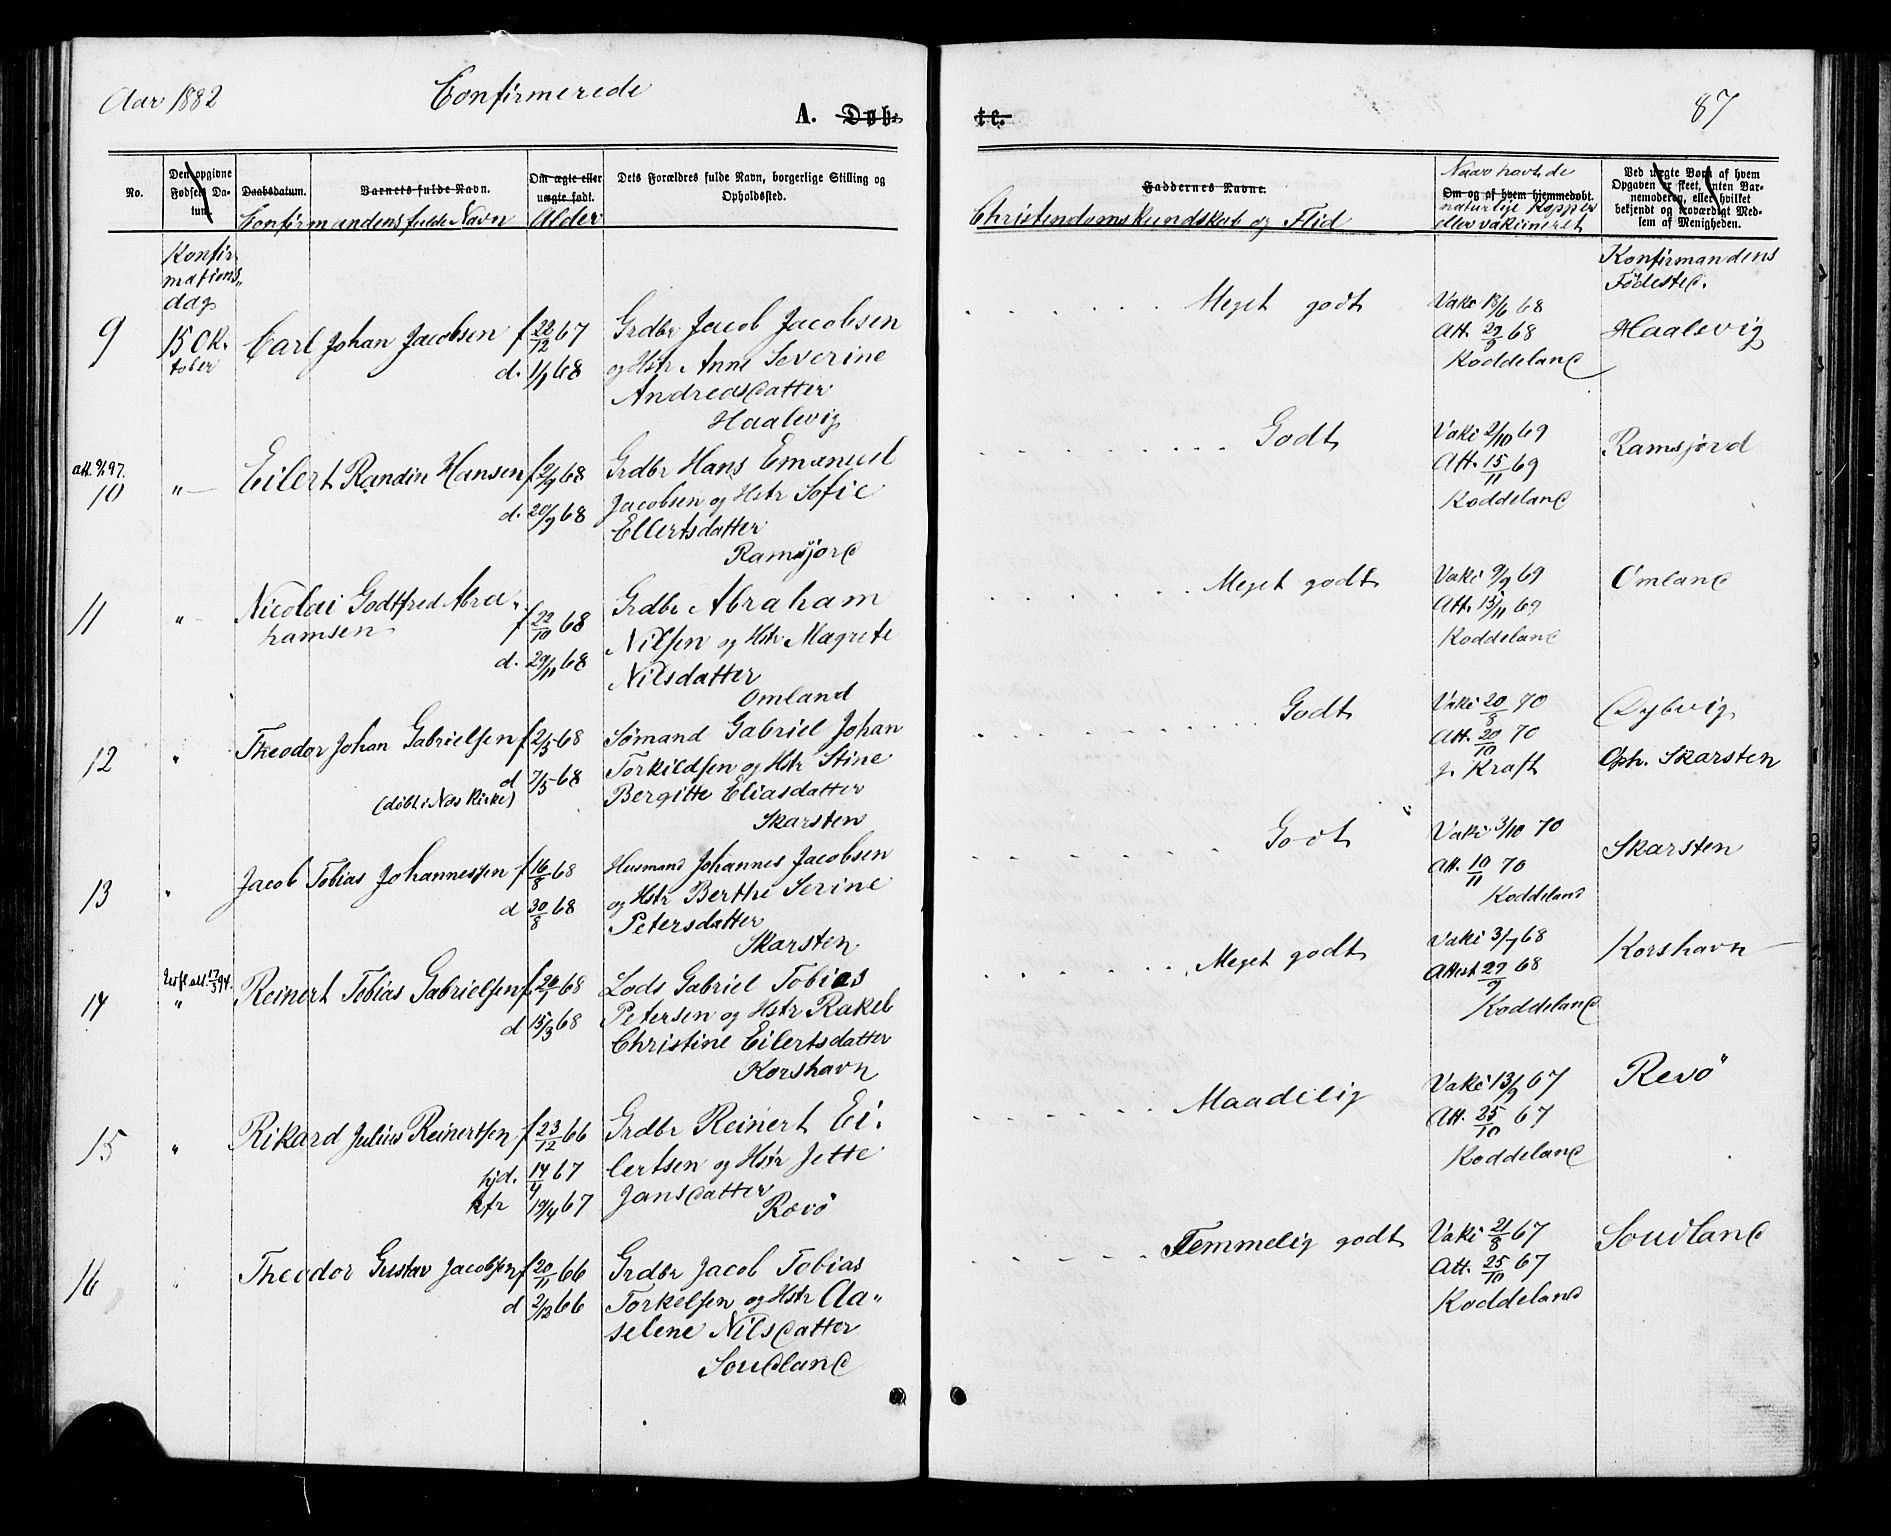 Aar 1882
Confirmerede
A. Døb-
te.
87
No.
Den opgivne Fødsels Datum.
Daabsdatum.
Barnets fulde Navn.
Confirmandens fulde Navn
Om ægte eller uægte født.
Alder
Dets Forældres fulde Navn, borgerlige Stilling og Opholdssted.
Faddernes Navne.
Christendomskundskab og Flid
Naar havt de
Om og af hvem hjemmedøbt.
naturlige Kopper
eller vakcineret
Ved uægte Børn af hvem
Opgaven er skeet, enten Bar-
nemoderen, eller hvilket
bekjendt og troværdigt Med-
lem af Menigheden.
Konfir-
mations-
dag
Konfirmandens
Fødested.
9
15 Ok-
tober
Carl Johan Jacobsen
f 22/12 67
d. 1/1 68
Grdbr Jacob Jacobsen
og Hstr Anne Severine
Andreasdatter
Haalevig
Meget godt
Vaki 18/6 68
Att. 29/9 68
Koddeland
Haalevig
10
"
Eilert Randin Hansen
f 2/9 68
d. 20/9 68
Grdbr Hans Emanuel
Jacobsen og Hstr Sofie
Ellertsdatter
Ramsjord
Godt
Vaki 2/10 69
Att. 15/11 69
Koddeland
Ramsjord
11
"
Nicolai Godtfred Abra-
hamsen
f 22/10 68
d. 29/11 68
Grdbr Abraham
Nilsen og Hstr Magrete
Nilsdatter
Omland
Meget godt
Vaki 9/9 69
Att. 15/11 69
Koddeland
Omland
12
"
Theodor Johan Gabrielsen
f 2/3 68
d 7/5 68
(døbt i Næs Kirke)
Sømand Gabriel Johan
Torkildsen og Hstr Stine
Bergitte Eliasdatter
Skarsten
Godt
Vaki 20/8 70
Att. 20/10 70
J. Kraft
Dybvig
Oph. Skarsten
13
"
Jacob Tobias Johannessen
f 16/8 68
d 30/8 68
Husmand Johannes Jacobsen
og Hstr Berthe Serine
Petersdatter
Skarsten
Godt
Vaki 3/10 70
Att. 10/11 70
Koddeland
Skarsten
14
"
Reinert Tobias Gabrielsen
f 26/1 68
d 15/3 68
Lods Gabriel Tobias
Petersen og Hstr Rakel
Christine Eilertsdatter
Korshavn
Meget godt
Vaki 3/7 68
Attest 29/9 68
Koddeland
Korshavn
15
"
Rikard Julius Reinertsen
f 23/12 66
hjd. 14/4 67
kfr 19/4 67
Grdbr Reinert Ei-
lertsen og Hstr Jette
Jansdatter
Revö
Maadelig
Vaki 13/9 67
Att. 25/10 67
Koddeland
Revö
16
"
Theodor Gustav Jacobsen
f 20/11 66
d 2/12 66
Grdbr Jacob Tobias
Torkelsen og Hstr Aa-
selene Nilsdatter
Soudland
Temmelig godt
Vaki 21/8 67
Att. 25/10 67
Koddeland
Soudland